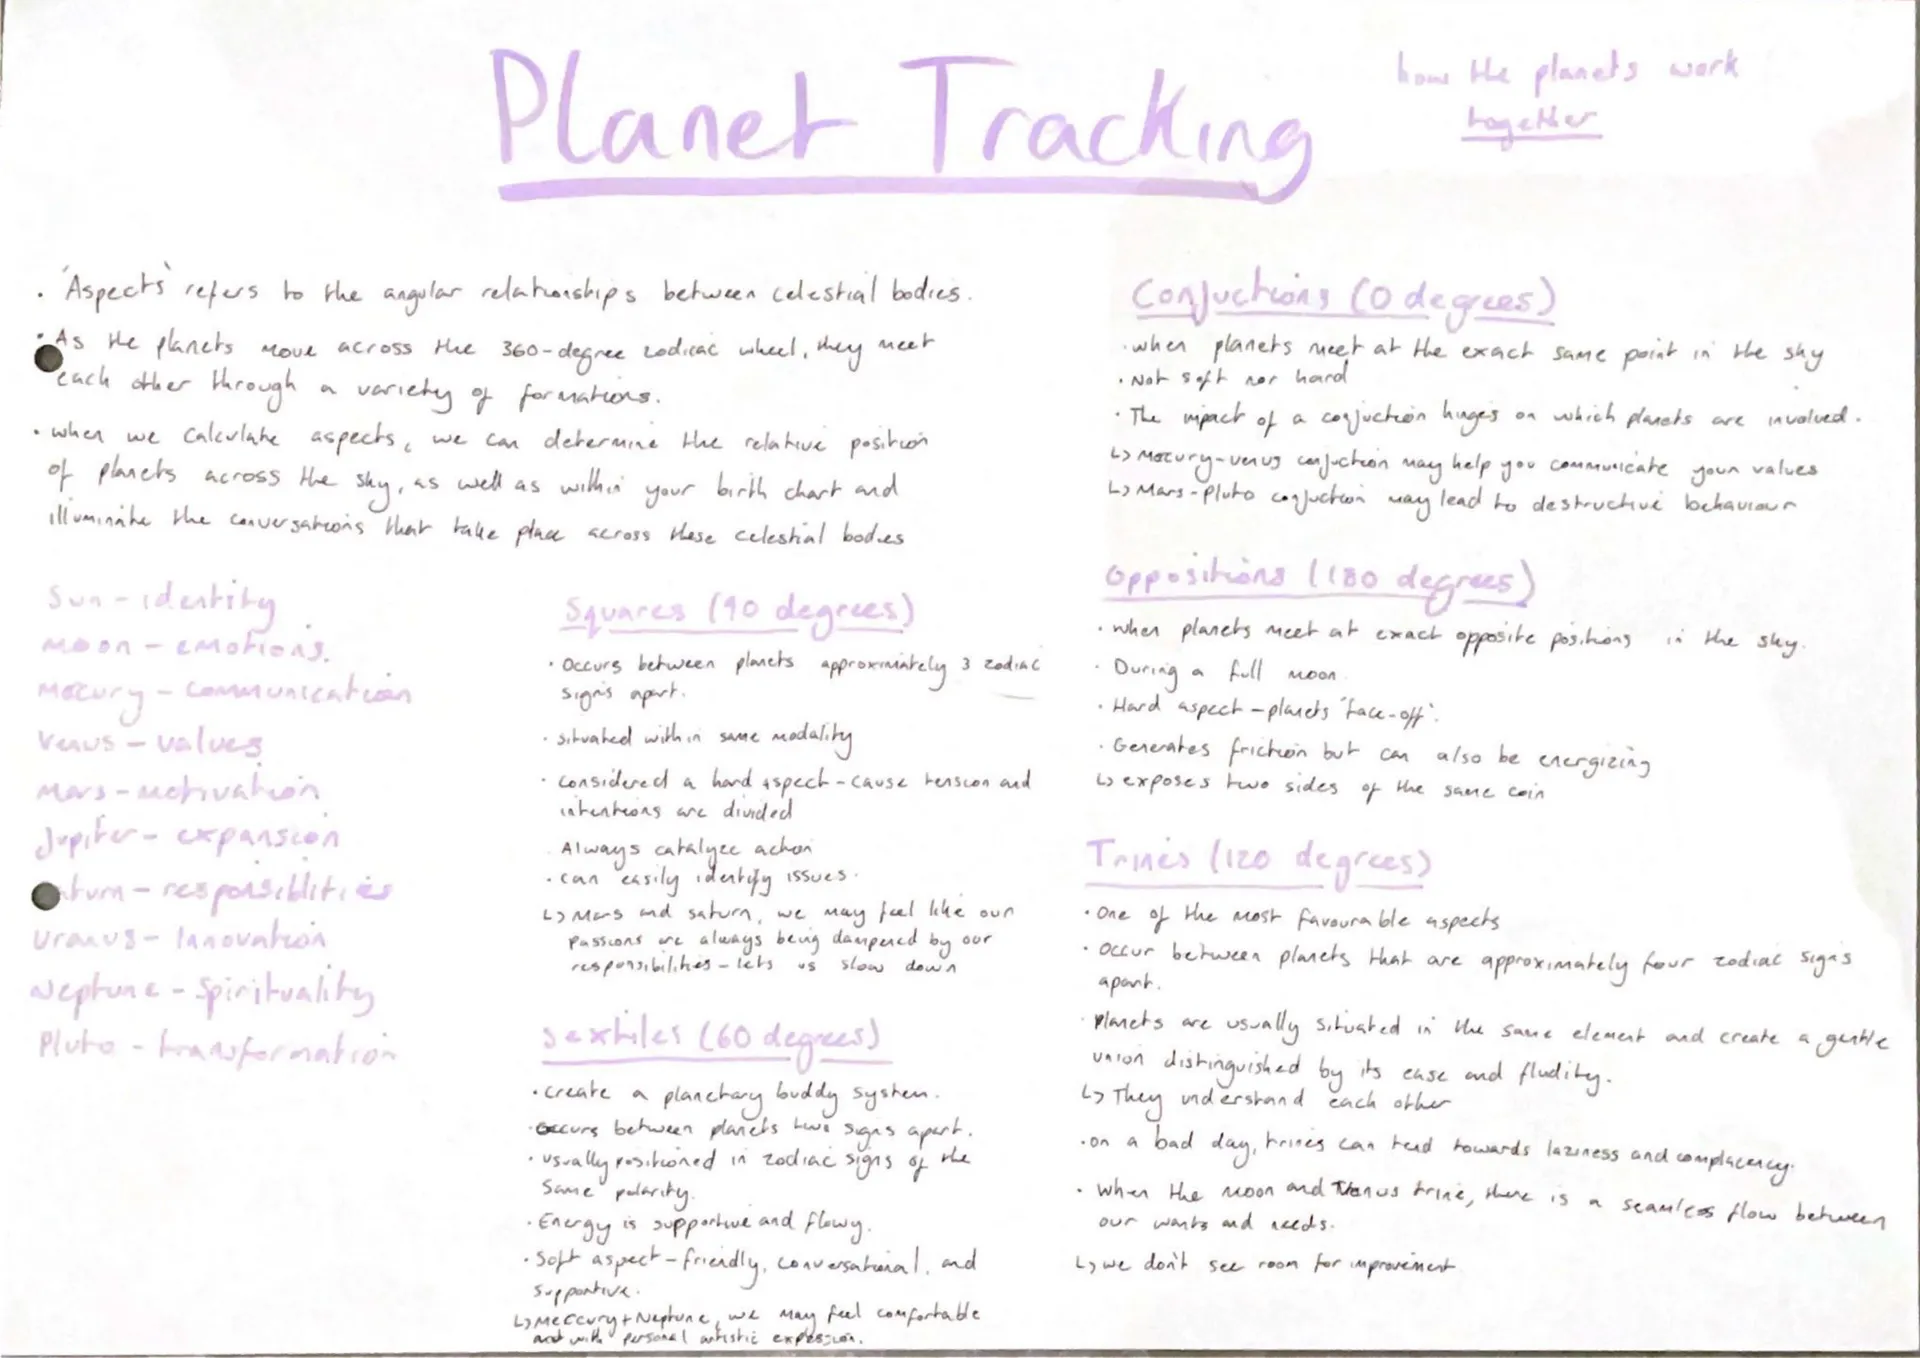 Planet Tracking
how the planets work
together
. 'Aspects' refers to the angular relationships between celestial bodies.
• As the planets move across the 360-degree zodicac wheel, they meet
each other through a variety of formations.
• when we calculate aspects, we can determine the relative position
of planets across the sky, as well as within your birth chart and
illuminate the conversations that take place across these celestial bodies
Sun - identity
Moon - emotions.
Mercury - Communication
Venus - values
Mars - motivation
Jupiter - expansion
Saturn - responsiblities
Uranus - Innovation
Neptune - Spirituality
Pluto - transformation
Squares (90 degrees)
• Occurs between planets approximately 3 zodiac
signs apart.
• situated within same modality
• Considered a hard aspect - cause tension and
intentions are divided
. Always catalyze action
• can easily identify issues.
↳ Mars and saturn, we may feel like our
passions are always being dampened by our
responsibilities - lets us slow down
Sextiles (60 degrees)
• create a planetary buddy system.
• occurs between planets two signs apart.
• usually positioned in zodiac signs of the
same polarity.
• Energy is supportive and flowy.
• Soft aspect - friendly, conversational, and
supportive.
↳ Mercury + Neptune, we may feel comfortable
with personal artistic expression.
Conjuctions (0 degrees)
• when planets meet at the exact same point in the sky
• Not soft nor hard
• The impact of a conjuction hinges on which planets are involved.
↳ Mercury-venus conjuction may help you communicate your values
↳ Mars-Pluto conjuction may lead to destructive behaviour
Oppositions (180 degrees)
• when planets meet at exact opposite positions in the sky.
• During a full moon
• Hard aspect - planets 'face-off'.
• Generates friction but can also be energizing
↳ exposes two sides of the same coin
Trines (120 degrees)
• One of the most favourable aspects
• Occur between planets that are approximately four zodiac signs
apart.
• Planets are usually situated in the same element and create a gentle
union distinguished by its ease and fludity.
↳ They understand each other
• on a bad day, trines can tend towards laziness and complacency.
• When the moon and Venus trine, there is a seamless flow between
our wants and needs.
↳ we don't see room for improvement